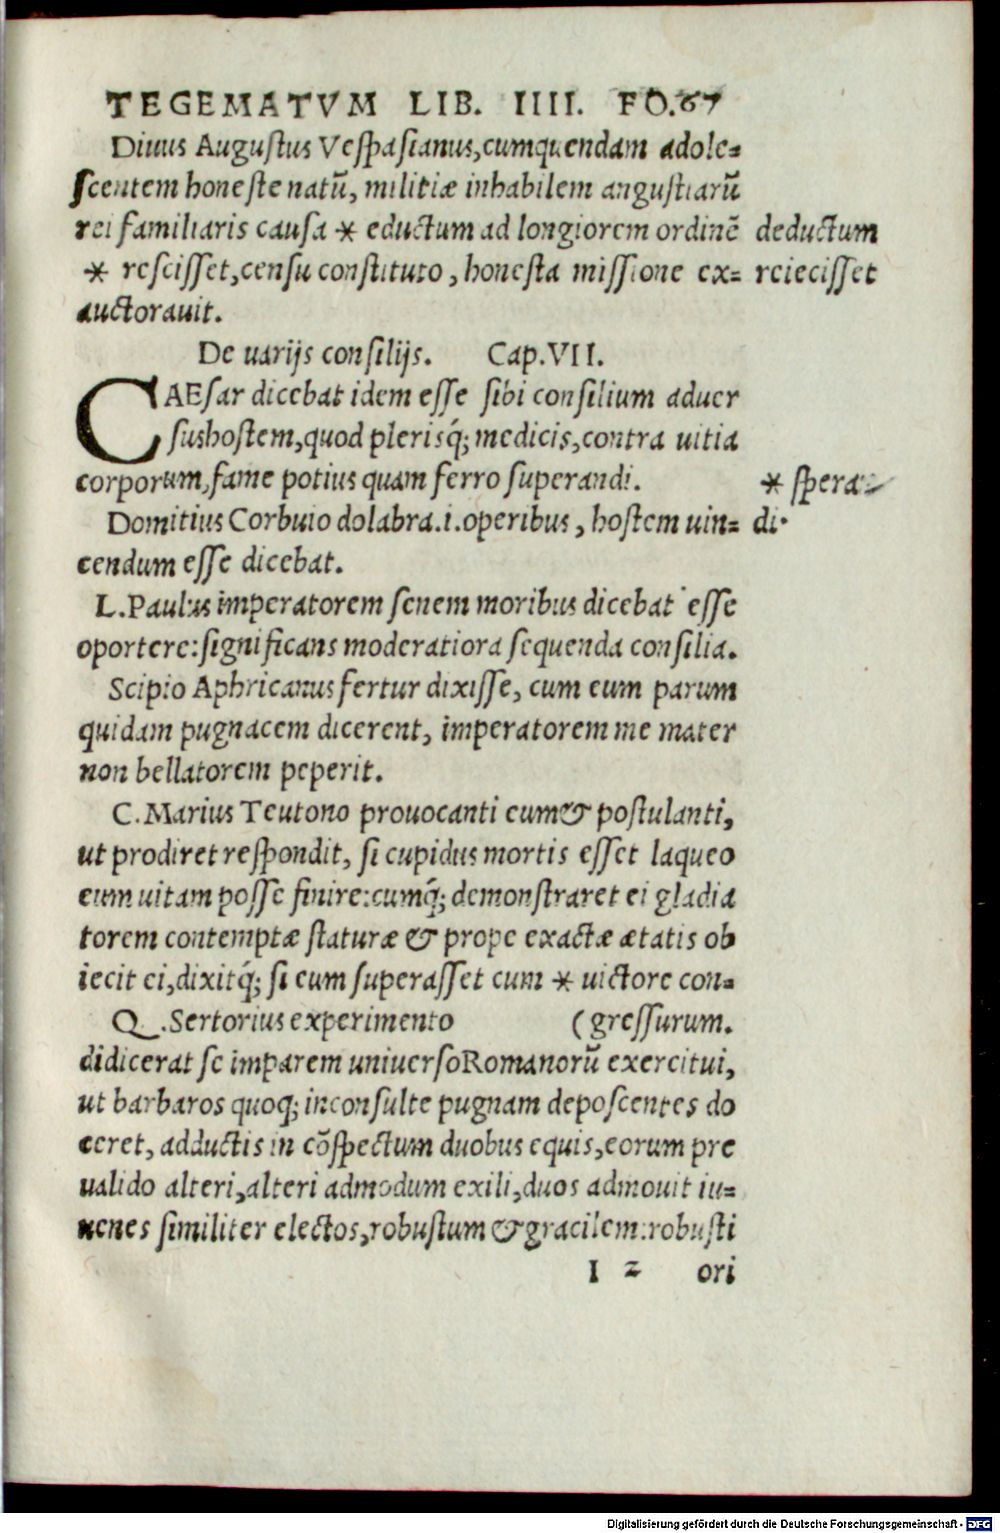 TEGEMATVM LIB. IIII. FO.67
Diuus Augustus Vespasianus,cumquendam adole=
scentem honeste natū, militiæ inhabilem angustiarū
rei familiaris causa * eductum ad longiorem ordinē deductum
* rescisset,censu constituto, honesta missione ex= reiecisset
auctorauit.
De uarijs consilijs. Cap.VII.
CAESar dicebat idem esse sibi consilium aduer
sushostem,quod plerisq́; medicis,contra uitia
corporum,fame potius quam ferro superandi. * spera=
Domitius Corbuio dolabra.i.operibus, hostem uin= di.
cendum esse dicebat.
L.Paulus imperatorem senem moribus dicebat esse
oportere:significans moderatiora sequenda consilia.
Scipio Aphricanus fertur dixisse, cum eum parum
quidam pugnacem dicerent, imperatorem me mater
non bellatorem peperit.
C.Marius Teutono prouocanti eum& postulanti,
ut prodiret respondit, si cupidus mortis esset laqueo
eum uitam posse finire:cumq́; demonstraret ei gladia
torem contemptæ staturæ & prope exactæ ætatis ob
iecit ei,dixitq́; si eum superasset cum * uictore con=
Q.Sertorius experimento (gressurum.
didicerat se imparem uniuersoRomanorū exercitui,
ut barbaros quoq; inconsulte pugnam deposcentes do
ceret, adductis in cōspectum duobus equis,eorum pre
ualido alteri,alteri admodum exili,duos admouit iu=
uenes similiter electos,robustum & gracilem:robusti
I 2 ori
Digitalisierung gefördert durch die Deutsche Forschungsgemeinschaft - DFG